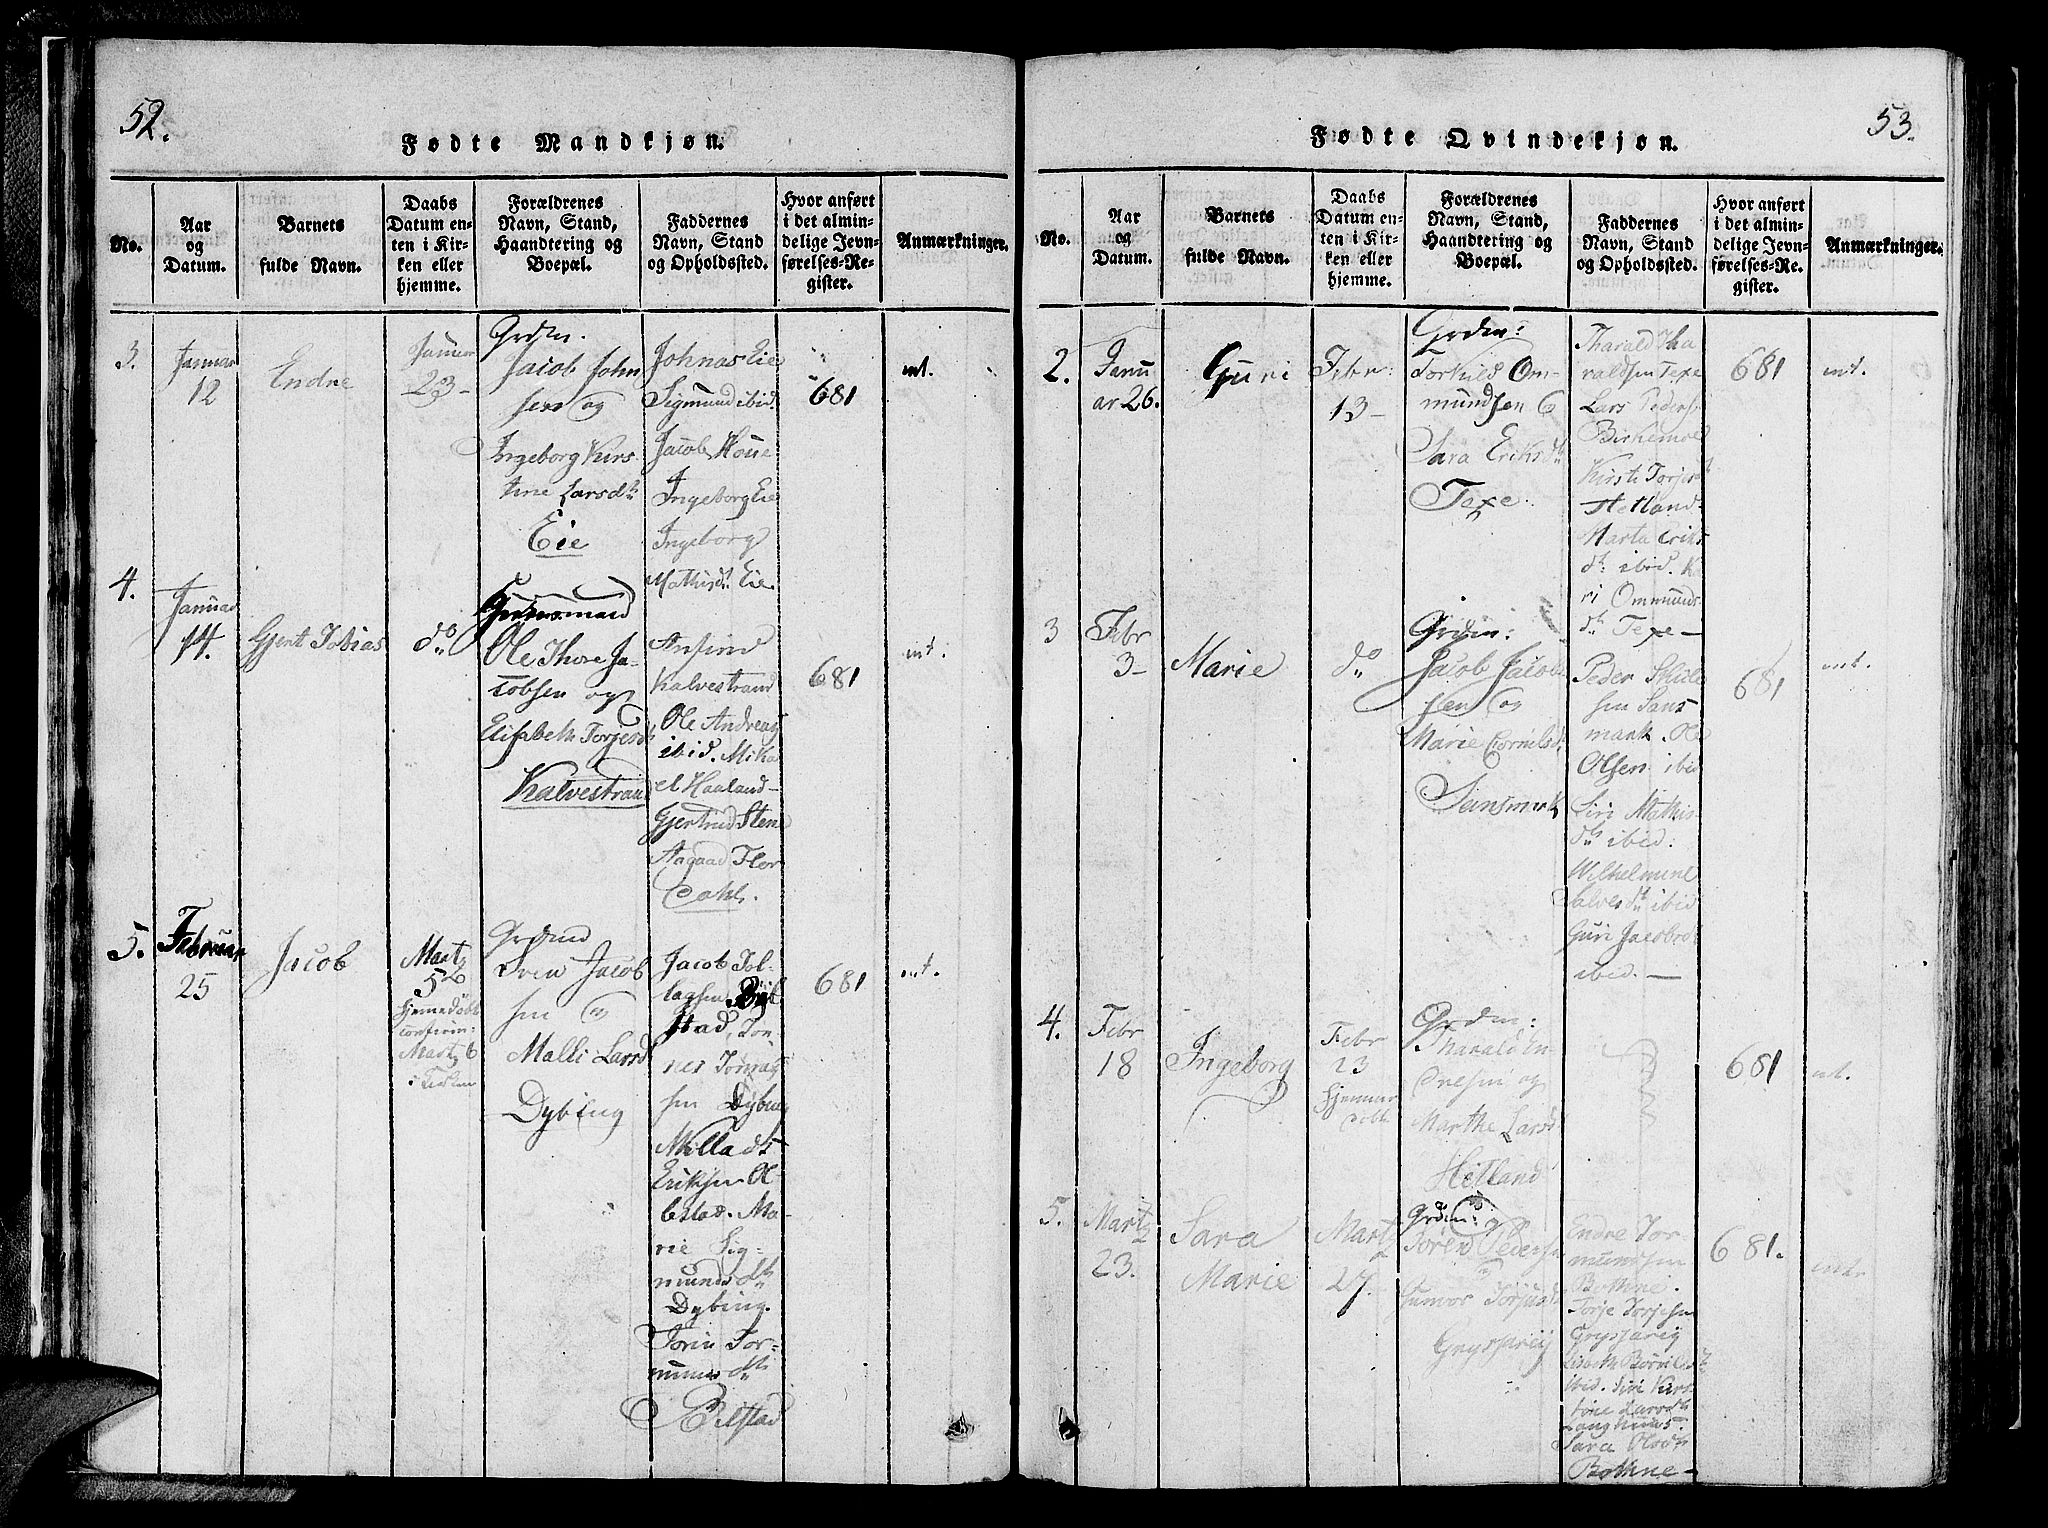 52.
Fødte Mandkjøn.
No.
Aar
og
Datum.
Barnets
fulde Navn.
Daabs
Datum en-
ten i Kir-
ken eller
hjemme.
Forældrenes
Navn, Stand,
Haandtering og
Boepæl.
Faddernes
Navn, Stand
og Opholdssted.
Hvor anført
i det almin-
delige Jevn-
førelses-Re-
gister.
Anmærkninger.
3.
Januar
12
Endne
Januar
23-
Grdm.
Jacob John
sen og
Ingeborg Kirs
tine Larsdtr
Eie
Johnas Eie
Sigmund ibid.
Jacob Houe
Ingeborg Eie
Ingeborg
Mathisdr Eie
681
nt.
4.
Januar
14.
Gjert Tobias
do
Ole Thore Ja-
cobsen og
Elisabeth Torjesdr
Kalvestrand
Anfind
Kalvestrand
Ole Andreas
ibid. Mika
el Haaland-
Gjertrud Stene
Aagaad Flor
Dahl.
681
nt.
5.
Februar
25
Jacob
Martz
5te
Hjemedøbt
confirm:
Martz 6
Grdmd
Sven Jacob
sen og
Malli Larsd
Dybing
Jacob Tol-
lagsen
stad, Ton-
nes
sen Dybing
Eriksen
bestad. Ma-
rie Sig-
mundsdtr
Dybing.
Torin Tor-
mundsdtr
Bilstad
681
nt.
53.
Fødte Qvindekjøn.
No.
Aar
og
Datum.
Barnets
fulde Navn.
Daabs
Datum en-
ten i Kir-
ken eller
hjemme.
Forældrenes
Navn, Stand,
Haandtering og
Boepæl.
Faddernes
Navn, Stand
og Opholdssted.
Hvor anført
i det almin-
delige Jevn-
førelses-Re-
gister.
Anmærkninger.
2.
Janu
ar 26.
Guri
Febr:
13-
Grdm:
Torkild Om-
mundsen &
Sara Eriksdtr
Texe.
Tharald Tha
raldsen Texe
Lars Pedersen
Birkemoe
Kirsti Torjesdt
Hetland.
Marta Eriks
dr ibid. Ka
ri Ommunds
dr Texe-
681
nt.
3
Febr
3-
Marie
do
Grdm:
Jacob Jacob
sen og
Marie Cornelsd.
Sansmark
Peder Skiele
sen Sans
mark. Ole
Olsen ibid
Siri Mathis-
dr ibid:
Wilhelmine
Salvesdr ibid
Guri Jacobsd
ibid.-
681
nt.
4.
Febr
18
Ingeborg
Febr
23
Hjemme
døbt
Grdm:
Tharald En-
dresen og
Marthe Larsd
Hetland
681
nt.
5.
Martz
23.
Sara
Marie
Martz
27.
Grdm:
Søren Pedersen
Gunvor Torjusd
Grysfarey
Endre Tor-
mundsen
Bothne.
Torje Torjesen
Grysfarey
Lisbeth
ibid. Siri Kirs
tine Larsdtr
Langhuus
Sara Olsdr
Bothne-
681.
nt.